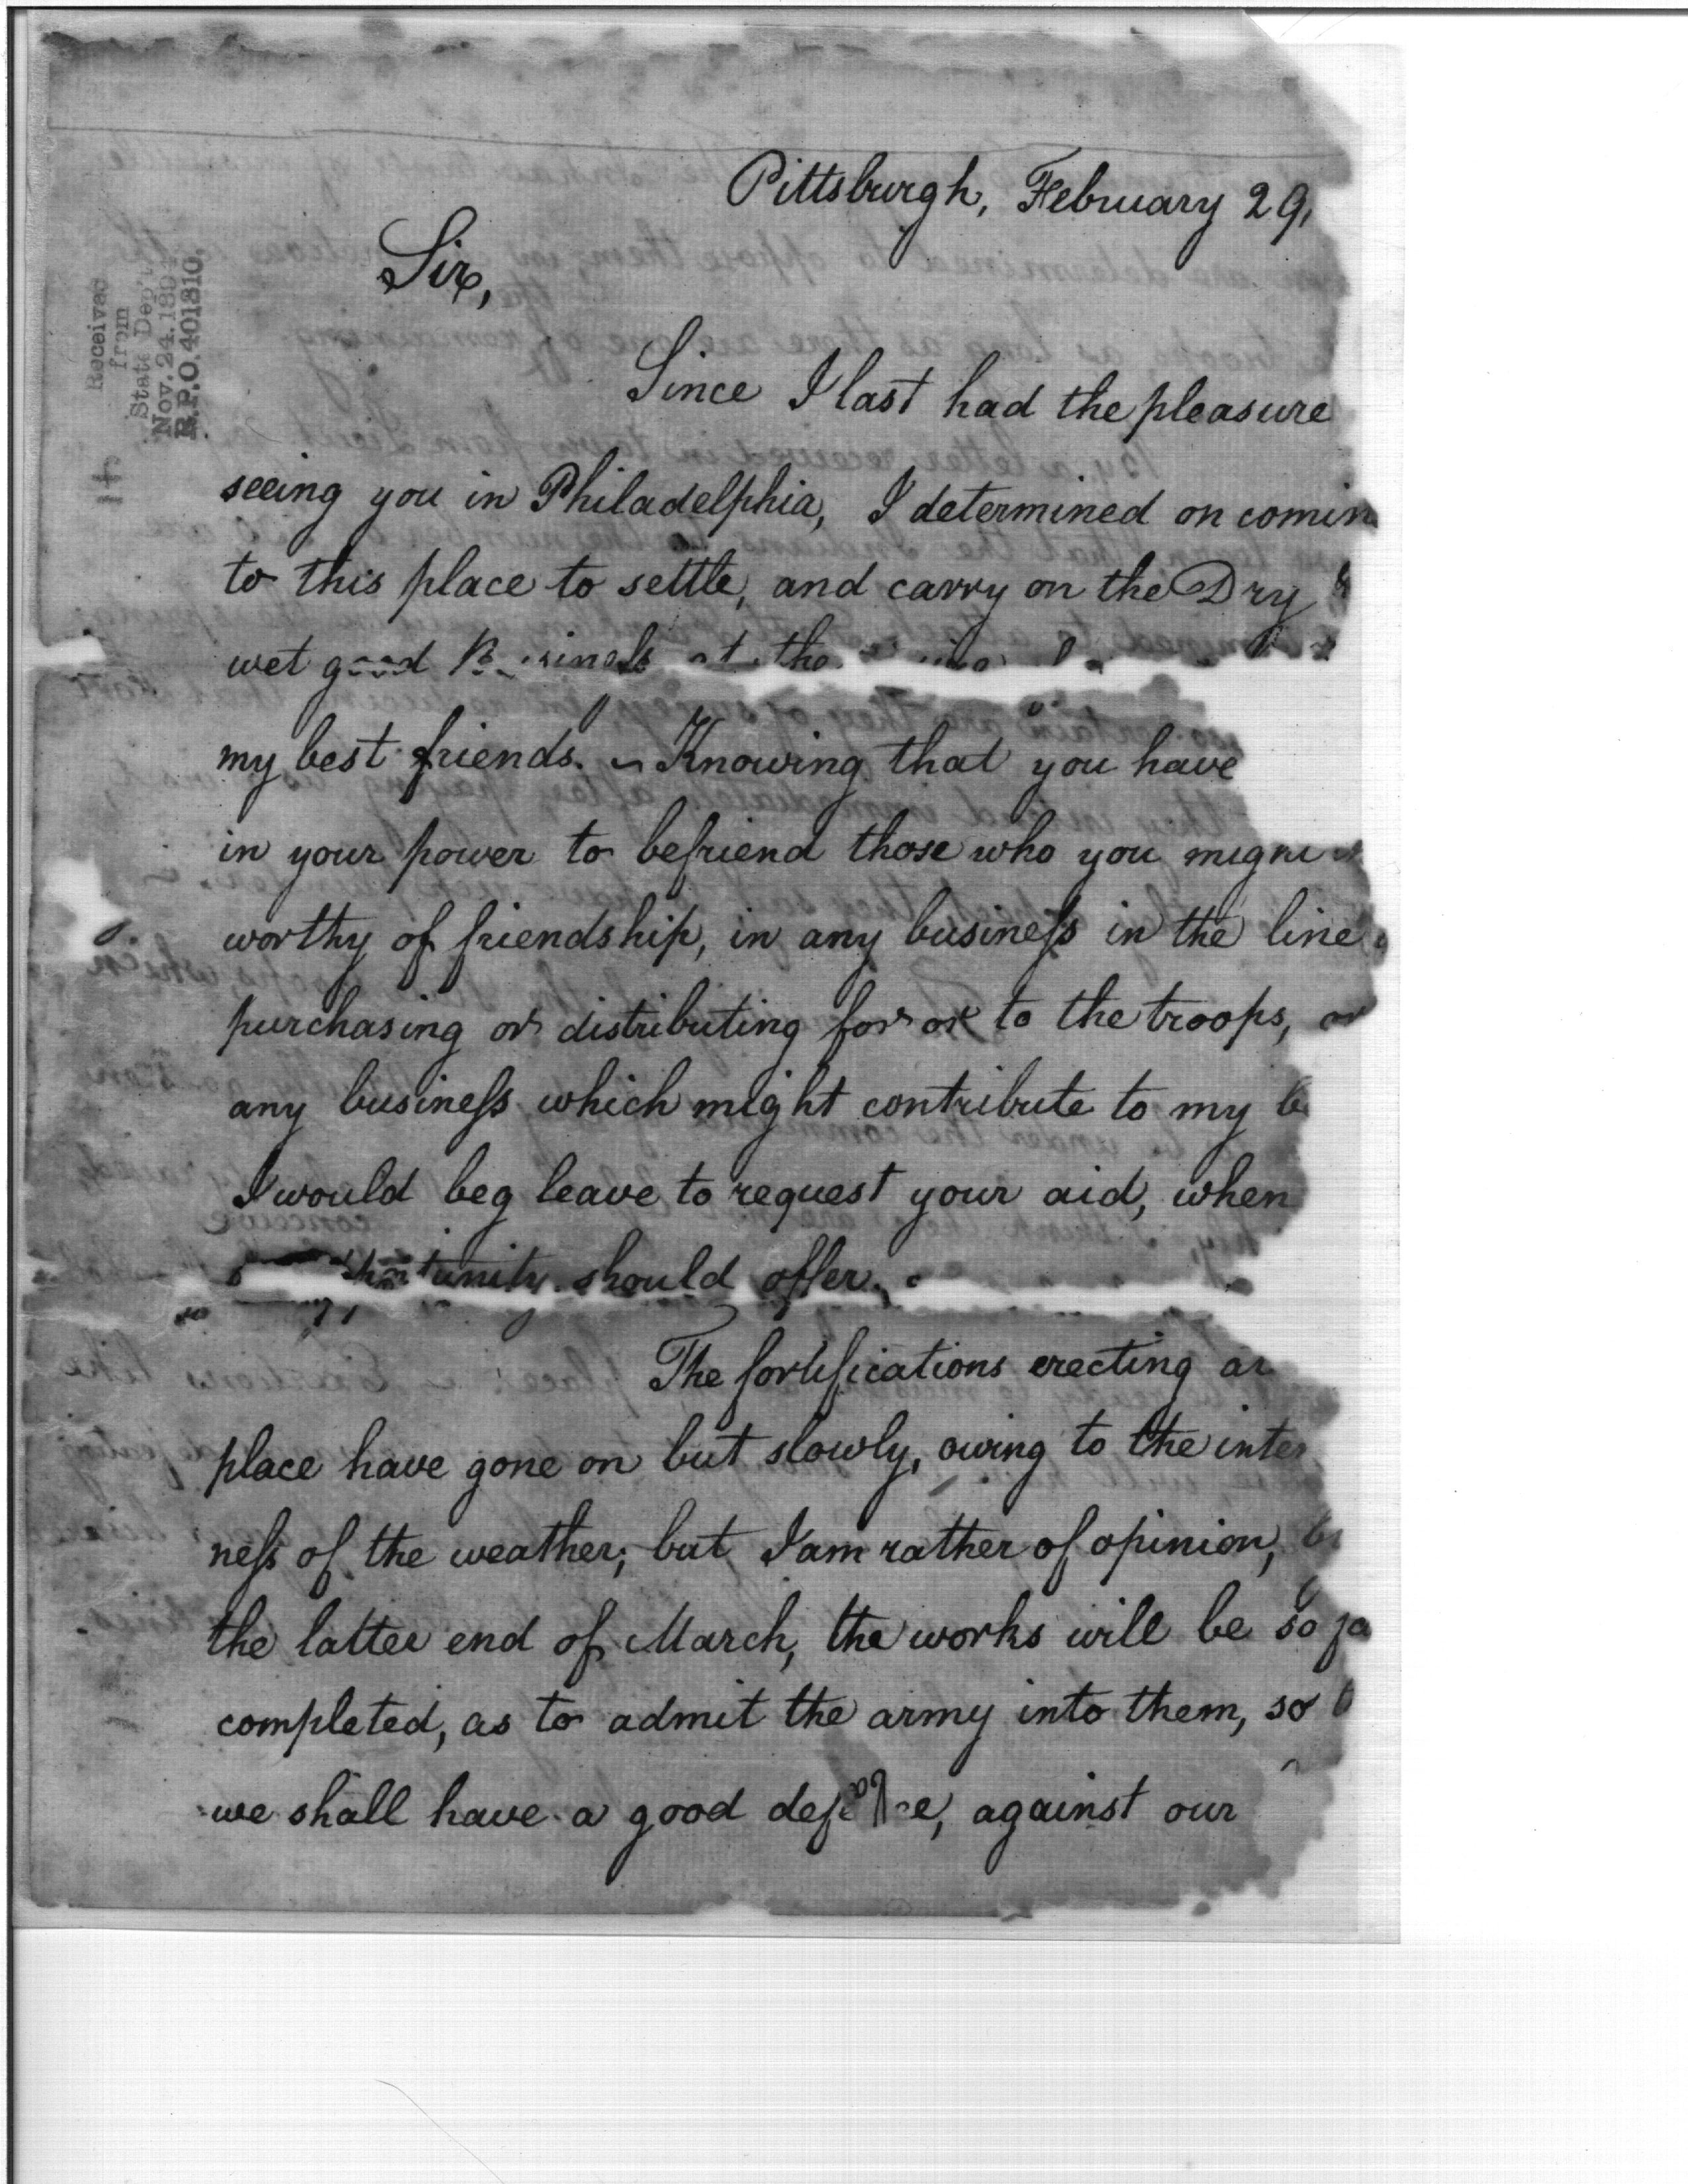 Pittsburgh, February 29,
Sir,
Received
from
State Dep't
Nov. 24. 1894
R.P.O. 401810.
Since I last had the pleasure
seeing you in Philadelphia, I determined on comin
to this place to settle, and carry on the Dry
wet good Business at the
my best friends. ~ Knowing that you have
in your power to befriend those who you might
worthy of friendship, in any business in the line
purchasing or distributing for or to the troops, or
any business which might contribute to my b
I would beg leave to request your aid, when
should offer.
The fortifications erecting at
place have gone on but slowly, owing to the inter
ness of the weather; but I am rather of opinion,
the latter end of March, the works will be so fa
completed, as to admit the army into them, so t
we shall have a good defence, against our